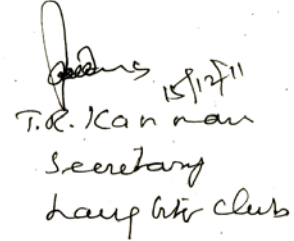 15/12/11
T.R. Kannan
Secretary
Laughter Club